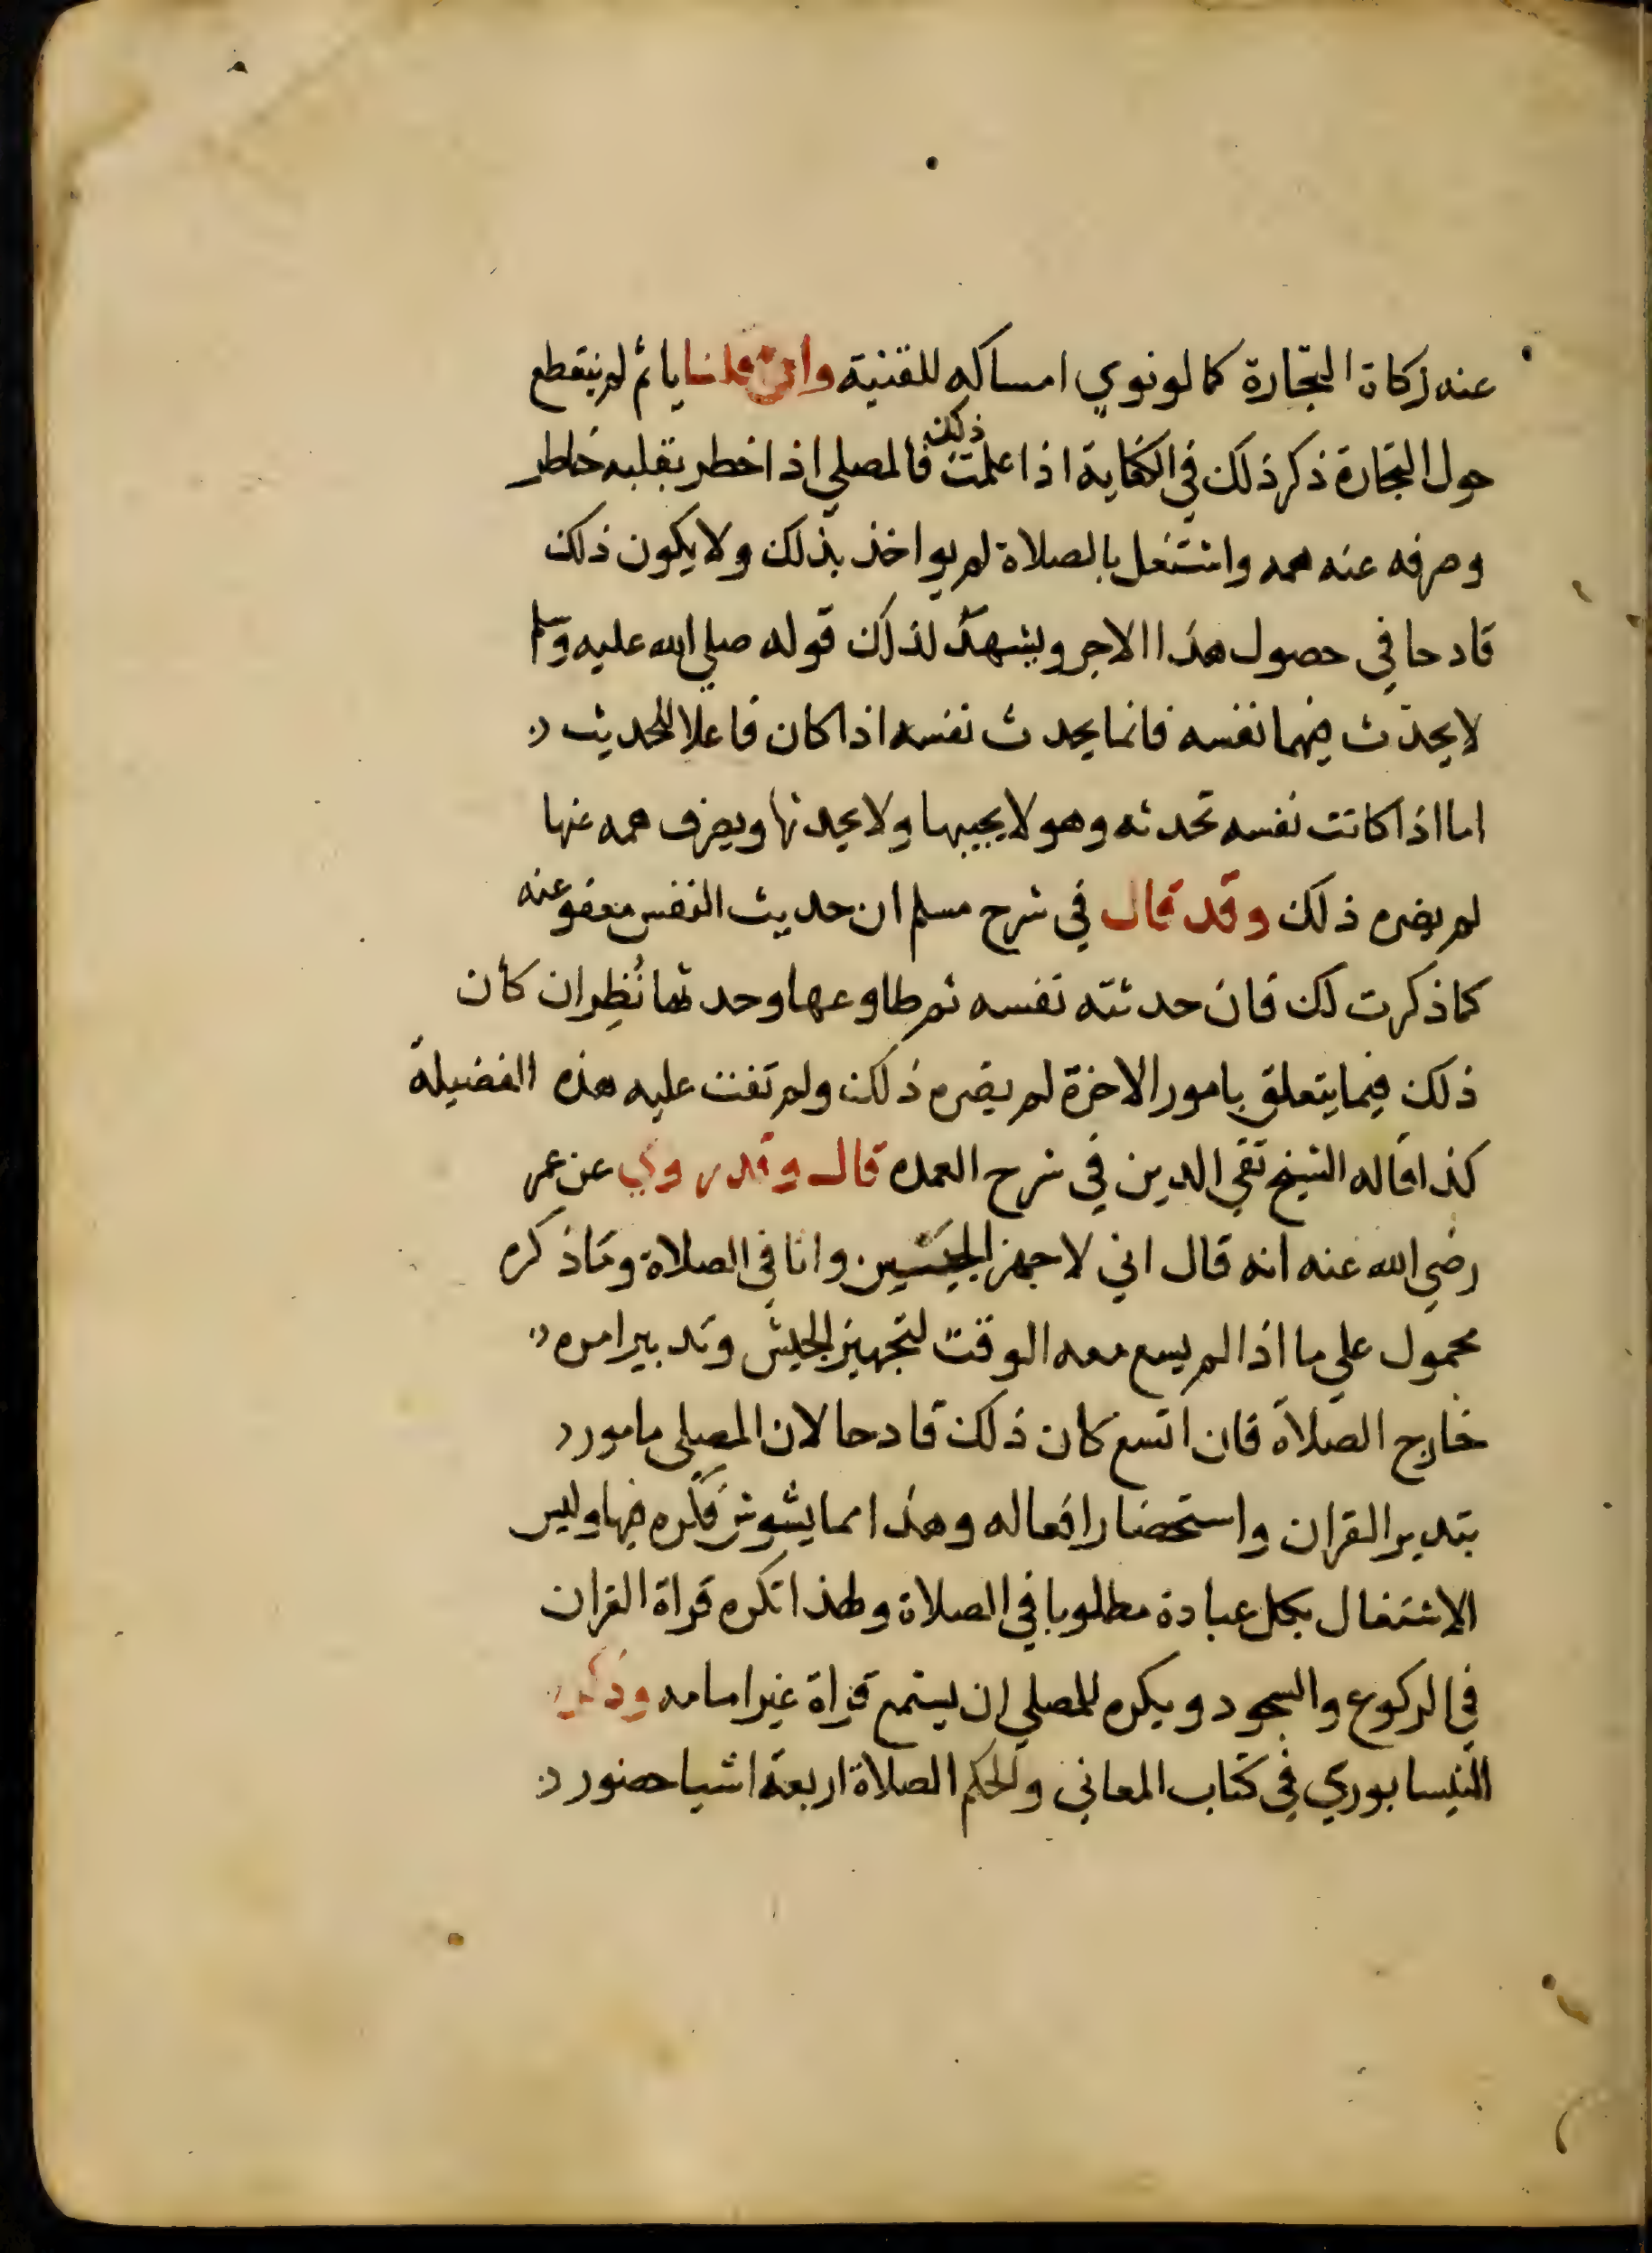 عنه زكاة التجارة كما لو نوي امساكه للقنية وان قلنا ياثم لم ينقطع
حول التجارة ذكر ذلك في الكفاية اذا علمت ذلك فالمصلي اذا خطر بقلبه خاطر
وصرفه عنه همه واشتغل بالصلاة لم يواخذ بذلك ولا يكون ذلك
قادحا في حصول هذا الاجر ويشهد لذلك قوله صلي الله عليه وسلم
لا يحدث فيهما نفسه فانما يحدث نفسه اذا كان فاعلا للحديث
اما اذا كانت نفسه تحدثه وهو لا يجيبها ولا يحدثها ويصرف همه عنها
لم يضره ذلك وقد قال في شرح مسلم ان حديث النفس معفو عنه
كما ذكرت لك فان حدثته نفسه ثم طاوعها وحدثها نُظِر ان كان
ذلك فيما يتعلق بامور الاخرة لم يضره ذلك ولم تفت عليه هذه الفضيلة
كذا قاله الشيخ تقي الدين في شرح العمده قال وقد روي عن عمر
رضي الله عنه انه قال اني لاجهز الجيش وانا في الصلاة وما ذكره
محمول علي ما اذا لم يسع معه الوقت لتجهيز الجيش وتدبير امره
خارج الصلاة فان اتسع كان ذلك قادحا لان المصلي مامور
بتدبر القران واستحضار افعاله وهذا مما يشوش فكره فيها وليس
الاشتغال بكل عبادة مطلوبا في الصلاة ولهذا تكره قراة القران
في الركوع والسجود ويكره للمصلي ان يستمع قراة غير امامه وذكر
النيسابوري في كتاب المعاني والحكم الصلاة اربعة اشيا حضور